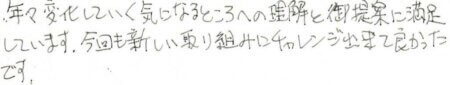 年々変化していく気になるところへの理解と御提案に満足
しています。今回も新しい取り組みにチャレンジ出来て良かった
です。